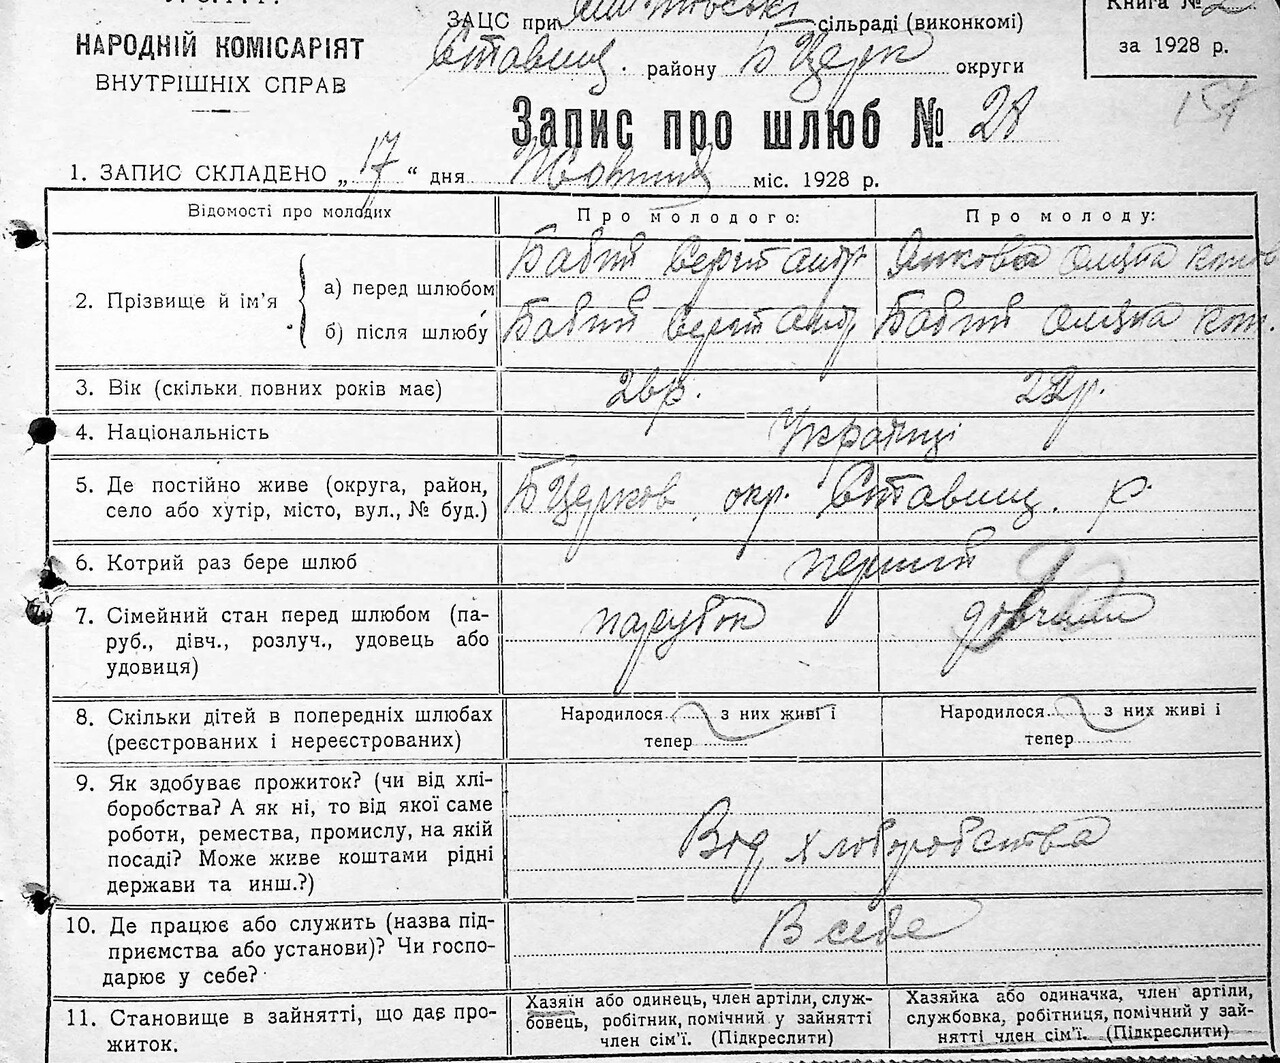 НАРОДНІЙ КОМІСАРІЯТ
ВНУТРІШНІХ СПРАВ
ЗАЦС при сільраді (виконкомі)
Ставищ. району Б Церк округи
Книга №
за 1928 р.
Запис про шлюб № 28
1. ЗАПИС СКЛАДЕНО „17“ дня Жовтня міс. 1928 р.
Відомості про молодих
Про молодого:
Про молоду:
2. Прізвище й ім’я
а) перед шлюбом
Бабий Сергій Андр.
Янкова Оляна
б) після шлюбу
Бабий Сергій Андр.
Бабий Оляна Кон.
3. Вік (скільки повних років має)
22р.
4. Національність
Українці
5. Де постійно живе (округа, район,
село або хутір, місто, вул., № буд.)
БЦерков. окр. Ставищ. р.
6. Котрий раз бере шлюб
перший
7. Сімейний стан перед шлюбом (па-
руб., дівч., розлуч., удовець або
удовиця)
парубок
дівчина
8. Скільки дітей в попередніх шлюбах
(реєстрованих і нереєстрованих)
Народилося з них живі і
тепер
Народилося з них живі і
тепер
9. Як здобуває прожиток? (чи від хлі-
боробства? А як ні, то від якої саме
роботи, ремества, промислу, на якій
посаді? Може живе коштами рідні
держави та инш.?)
Від хліборобства
10. Де працює або служить (назва під-
приємства або установи)? Чи госпо-
дарює у себе?
В себе
11. Становище в зайнятті, що дає про-
житок.
Хазяїн або одинець, член артіли, служ-
бовець, робітник, помічний у зайнятті
член сім’ї. (Підкреслити)
Хазяйка або одиначка, член артіли,
службовка, робітниця, помічний у зай-
нятті член сім’ї. (Підкреслити)